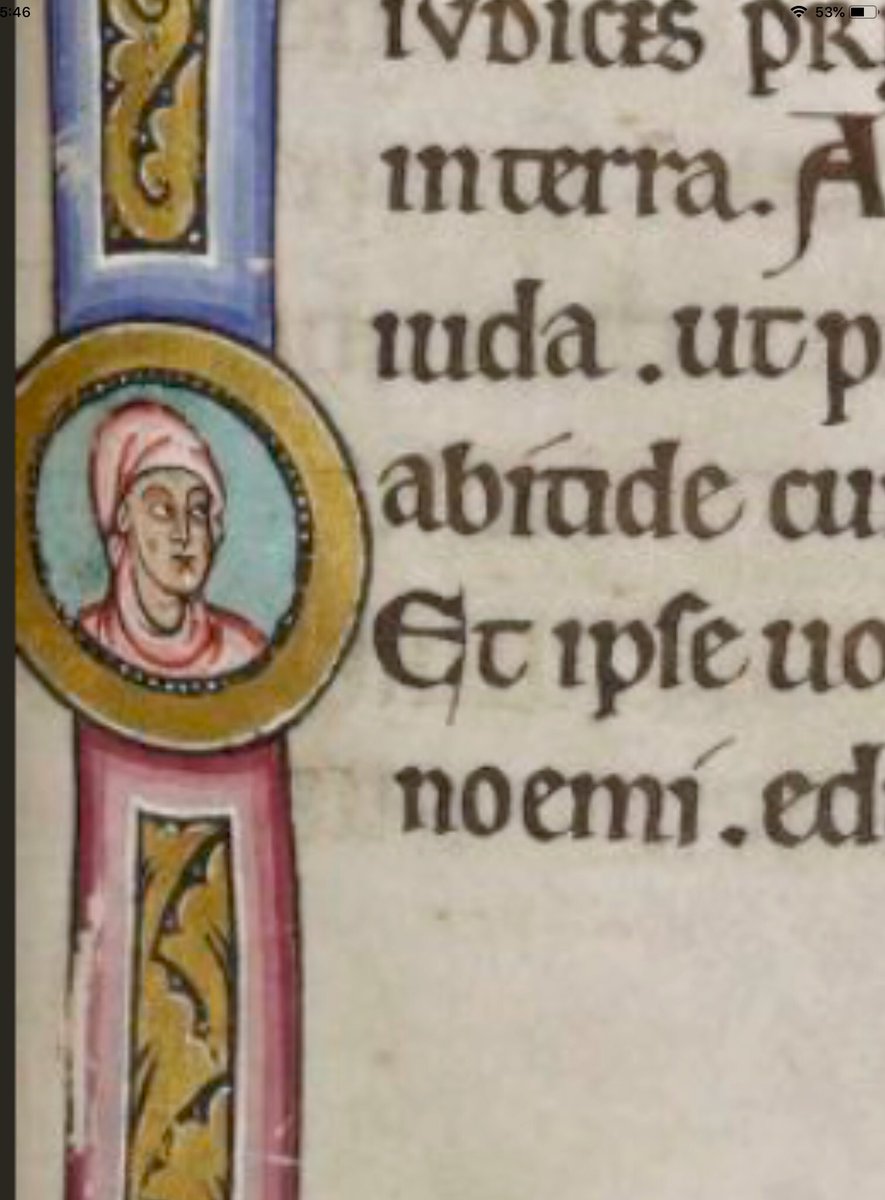 5:46 53%
IVDICES PR
in terra. A
iuda . ut p
abirtide cu
Et ipſe uo
noemi . ed